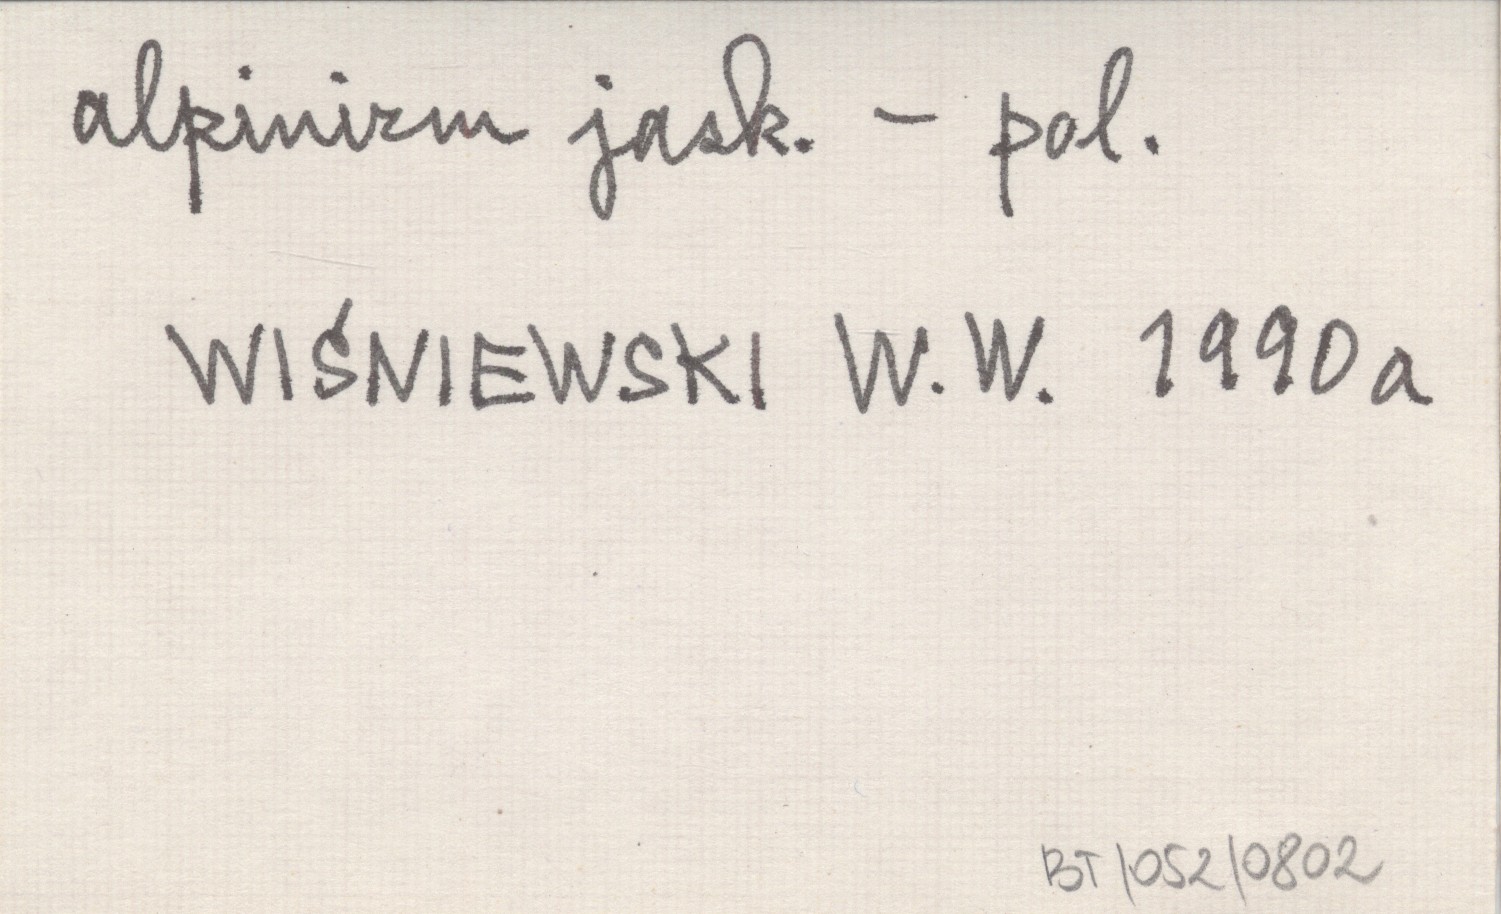 alpinizm jask. - pol.
WIŚNIEWSKI W.W. 1990a
BT/052/0802